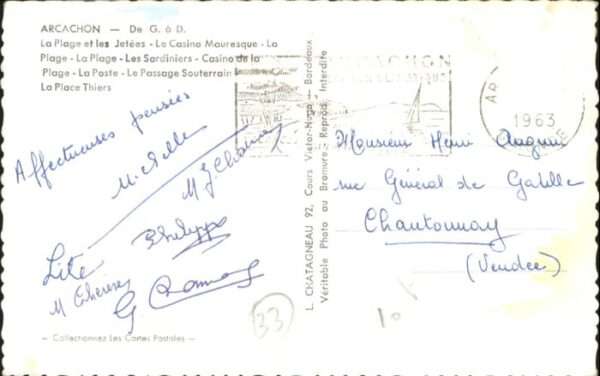 ARCACHON — De G. à D.
La Plage et les Jetées - Le Casino Mauresque - La
Plage - La Plage - Les Sardiniers - Casino de la
Plage - La Poste - Le Passage Souterrain
La Place Thiers
Affectueuses pensées
M
Philippe
Lite
M Thérèse
G
33
— Collectionnez Les Cartes Postales —
L. CHATAGNEAU 92, Cours Victor-Hugo — Bordeaux
Véritable Photo au Bromure - Reprod. Interdite
ARCACHON
AR
1963
Monsieur Henri
rue Général de Gaulle
Chantonnay
(Vendée)
10